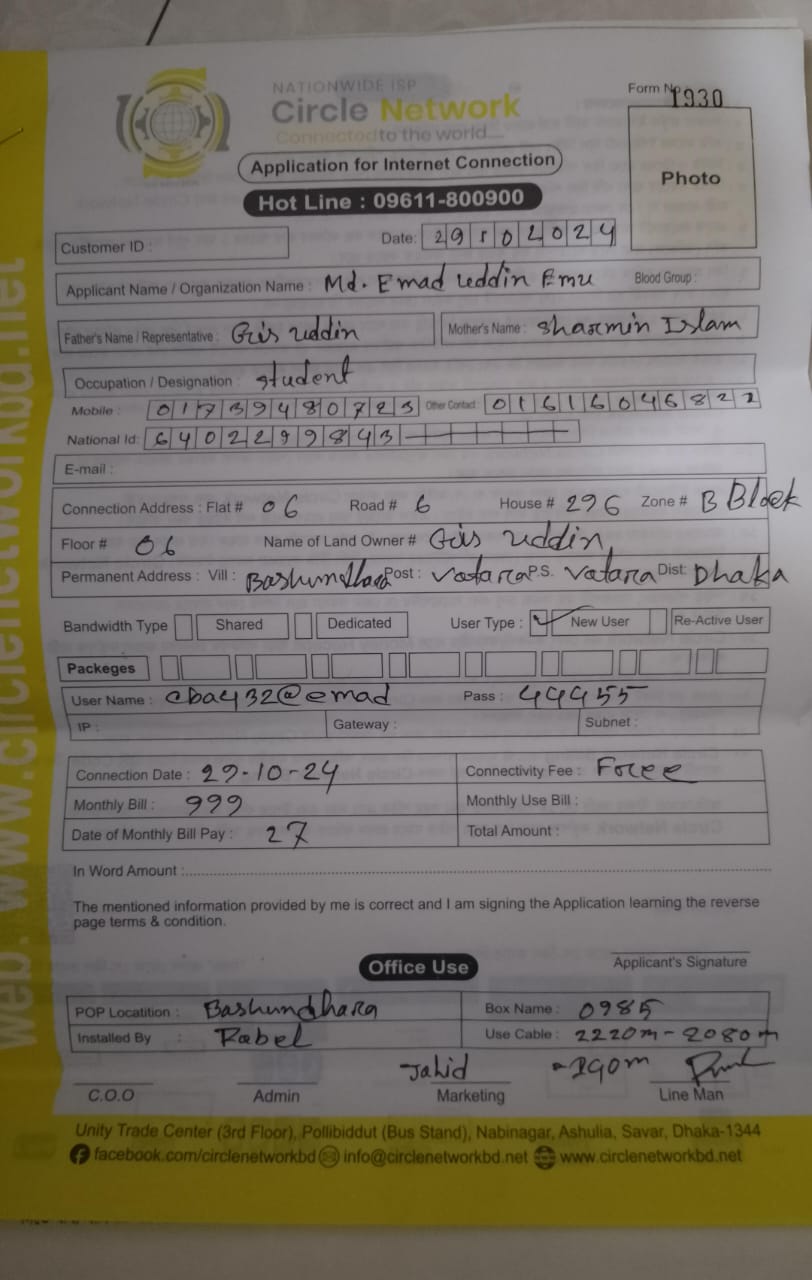 NATIONWIDE ISP
Circle Network
Connected to the world
Form No 1930
Application for Internet Connection
Photo
Hot Line : 09611-800900
Customer ID :
Date: 29102024
Applicant Name / Organization Name : Md. Emad uddin Emu Blood Group :
Father's Name / Representative : Gias uddin Mother's Name : Sharmin Islam
Occupation / Designation : student
Mobile : 01739480723 Other Contact : 01616046822
National Id: 6402299843
E-mail :
Connection Address : Flat # 06 Road # 6 House # 296 Zone # B Block
Floor # 06 Name of Land Owner # Gias uddin
Permanent Address : Vill : Bashundhara Post : Vatara P.S. Vatara Dist: Dhaka
Bandwidth Type Shared Dedicated User Type : ✓ New User Re-Active User
Packeges
User Name : cba432@emad Pass : 49955
IP : Gateway : Subnet :
Connection Date : 29-10-24 Connectivity Fee : Free
Monthly Bill : 999 Monthly Use Bill :
Date of Monthly Bill Pay : 27 Total Amount :
In Word Amount :
The mentioned information provided by me is correct and I am signing the Application learning the reverse
page terms & condition.
Office Use
Applicant's Signature
POP Locatition : Bashundhara Box Name : 0985
Installed By : Rabel Use Cable : 2220m-2080m
Jahid
C.O.O Admin Marketing Line Man
Unity Trade Center (3rd Floor), Pollibiddut (Bus Stand), Nabinagar, Ashulia, Savar, Dhaka-1344
facebook.com/circlenetworkbd info@circlenetworkbd.net www.circlenetworkbd.net
web: www.circlenetworkbd.net